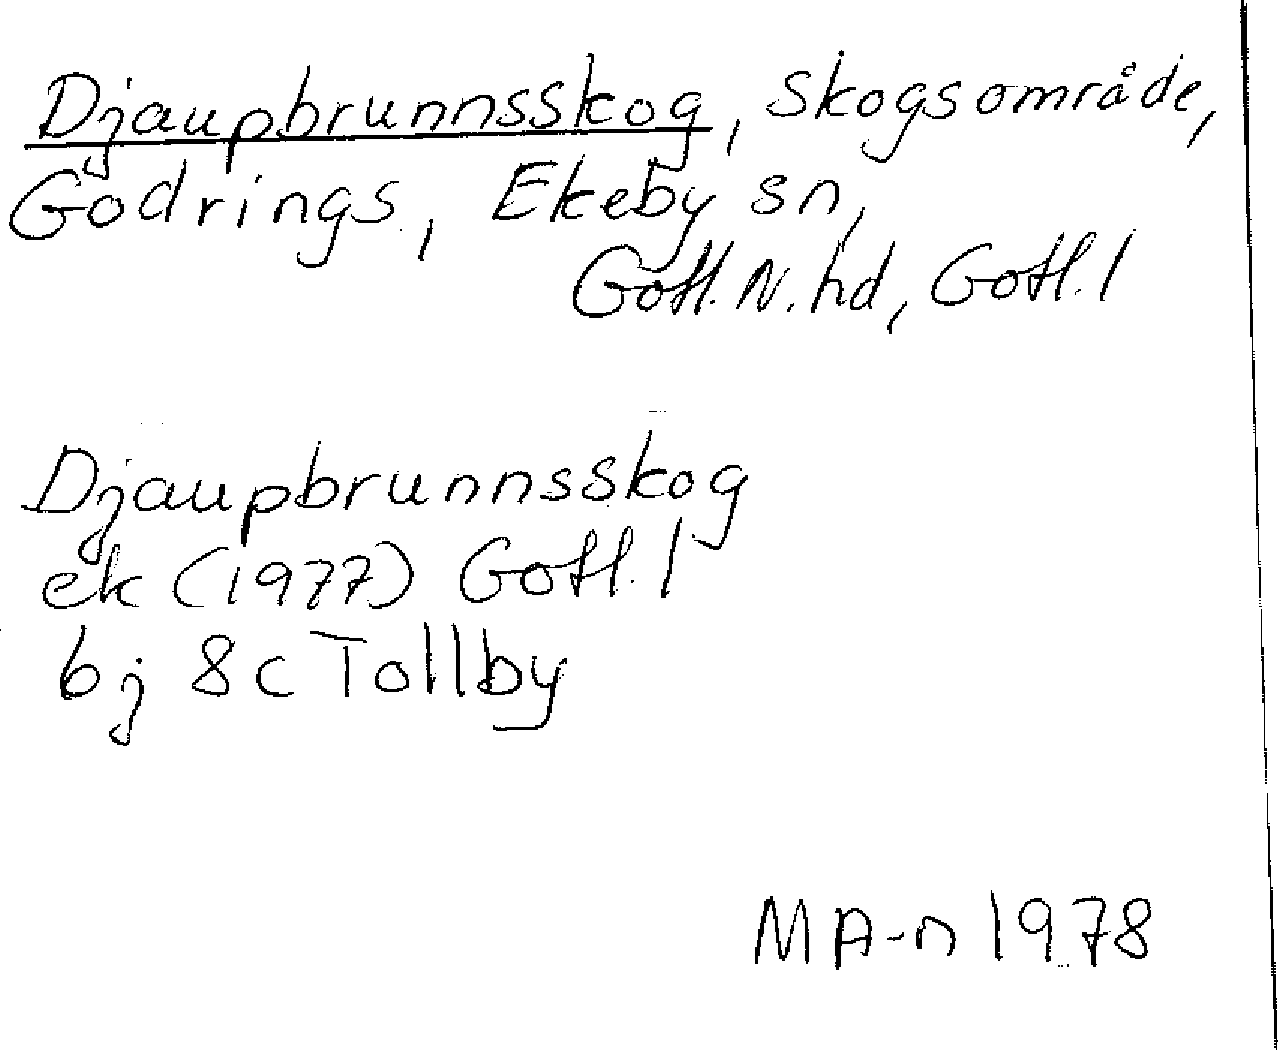 Djaupbrunnsskog, skogsområde,
Godrings, Ekeby sn,
Gotl. N. hd, Gotl. l
Djaupbrunnsskog
ek (1977) Gotl. l
6j 8c Tollby
MA-n 1978